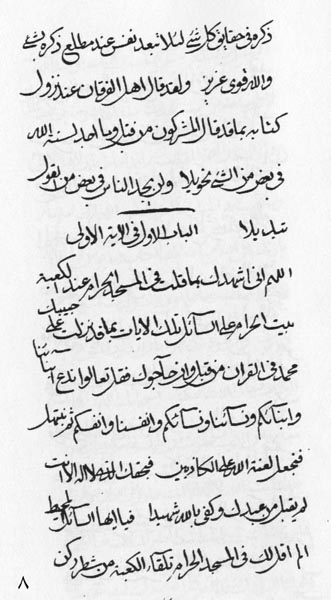 ذكره في حقايق كل شئ لئلا تبعد نفس عند مطلع ذكره بشئ
والله قوي عزيز ولقد قال اهل الفرقان عند نزول
كتابه بما قد قال المشركون من قبل وما احد لسنة الله
في بعض من الشئ تحويلا ولن يجد الناس في بعض من القول
تبديلا الباب الاول في الاية الاولى
اللهم اني اشهدك بما قلت في المسجد الحرام عند الكعبة
بيت الحرام على السائل تلك الايات بما قد نزلت على حبيبك
محمد في القران من قبل وان حاجوك فقل تعالوا ندع ابنائنا
وابنائكم ونسائنا ونسائكم وانفسنا وانفسكم ثم نبتهل
فنجعل لعنة الله على الكاذبين فبحقك الذي لا اله الا انت
لم يقبل من عبدك وكفى بالله شهيدا فيا ايها السائل المحيط
الم اقل لك في المسجد الحرام تلقاء الكعبة من شطر ركن
٨